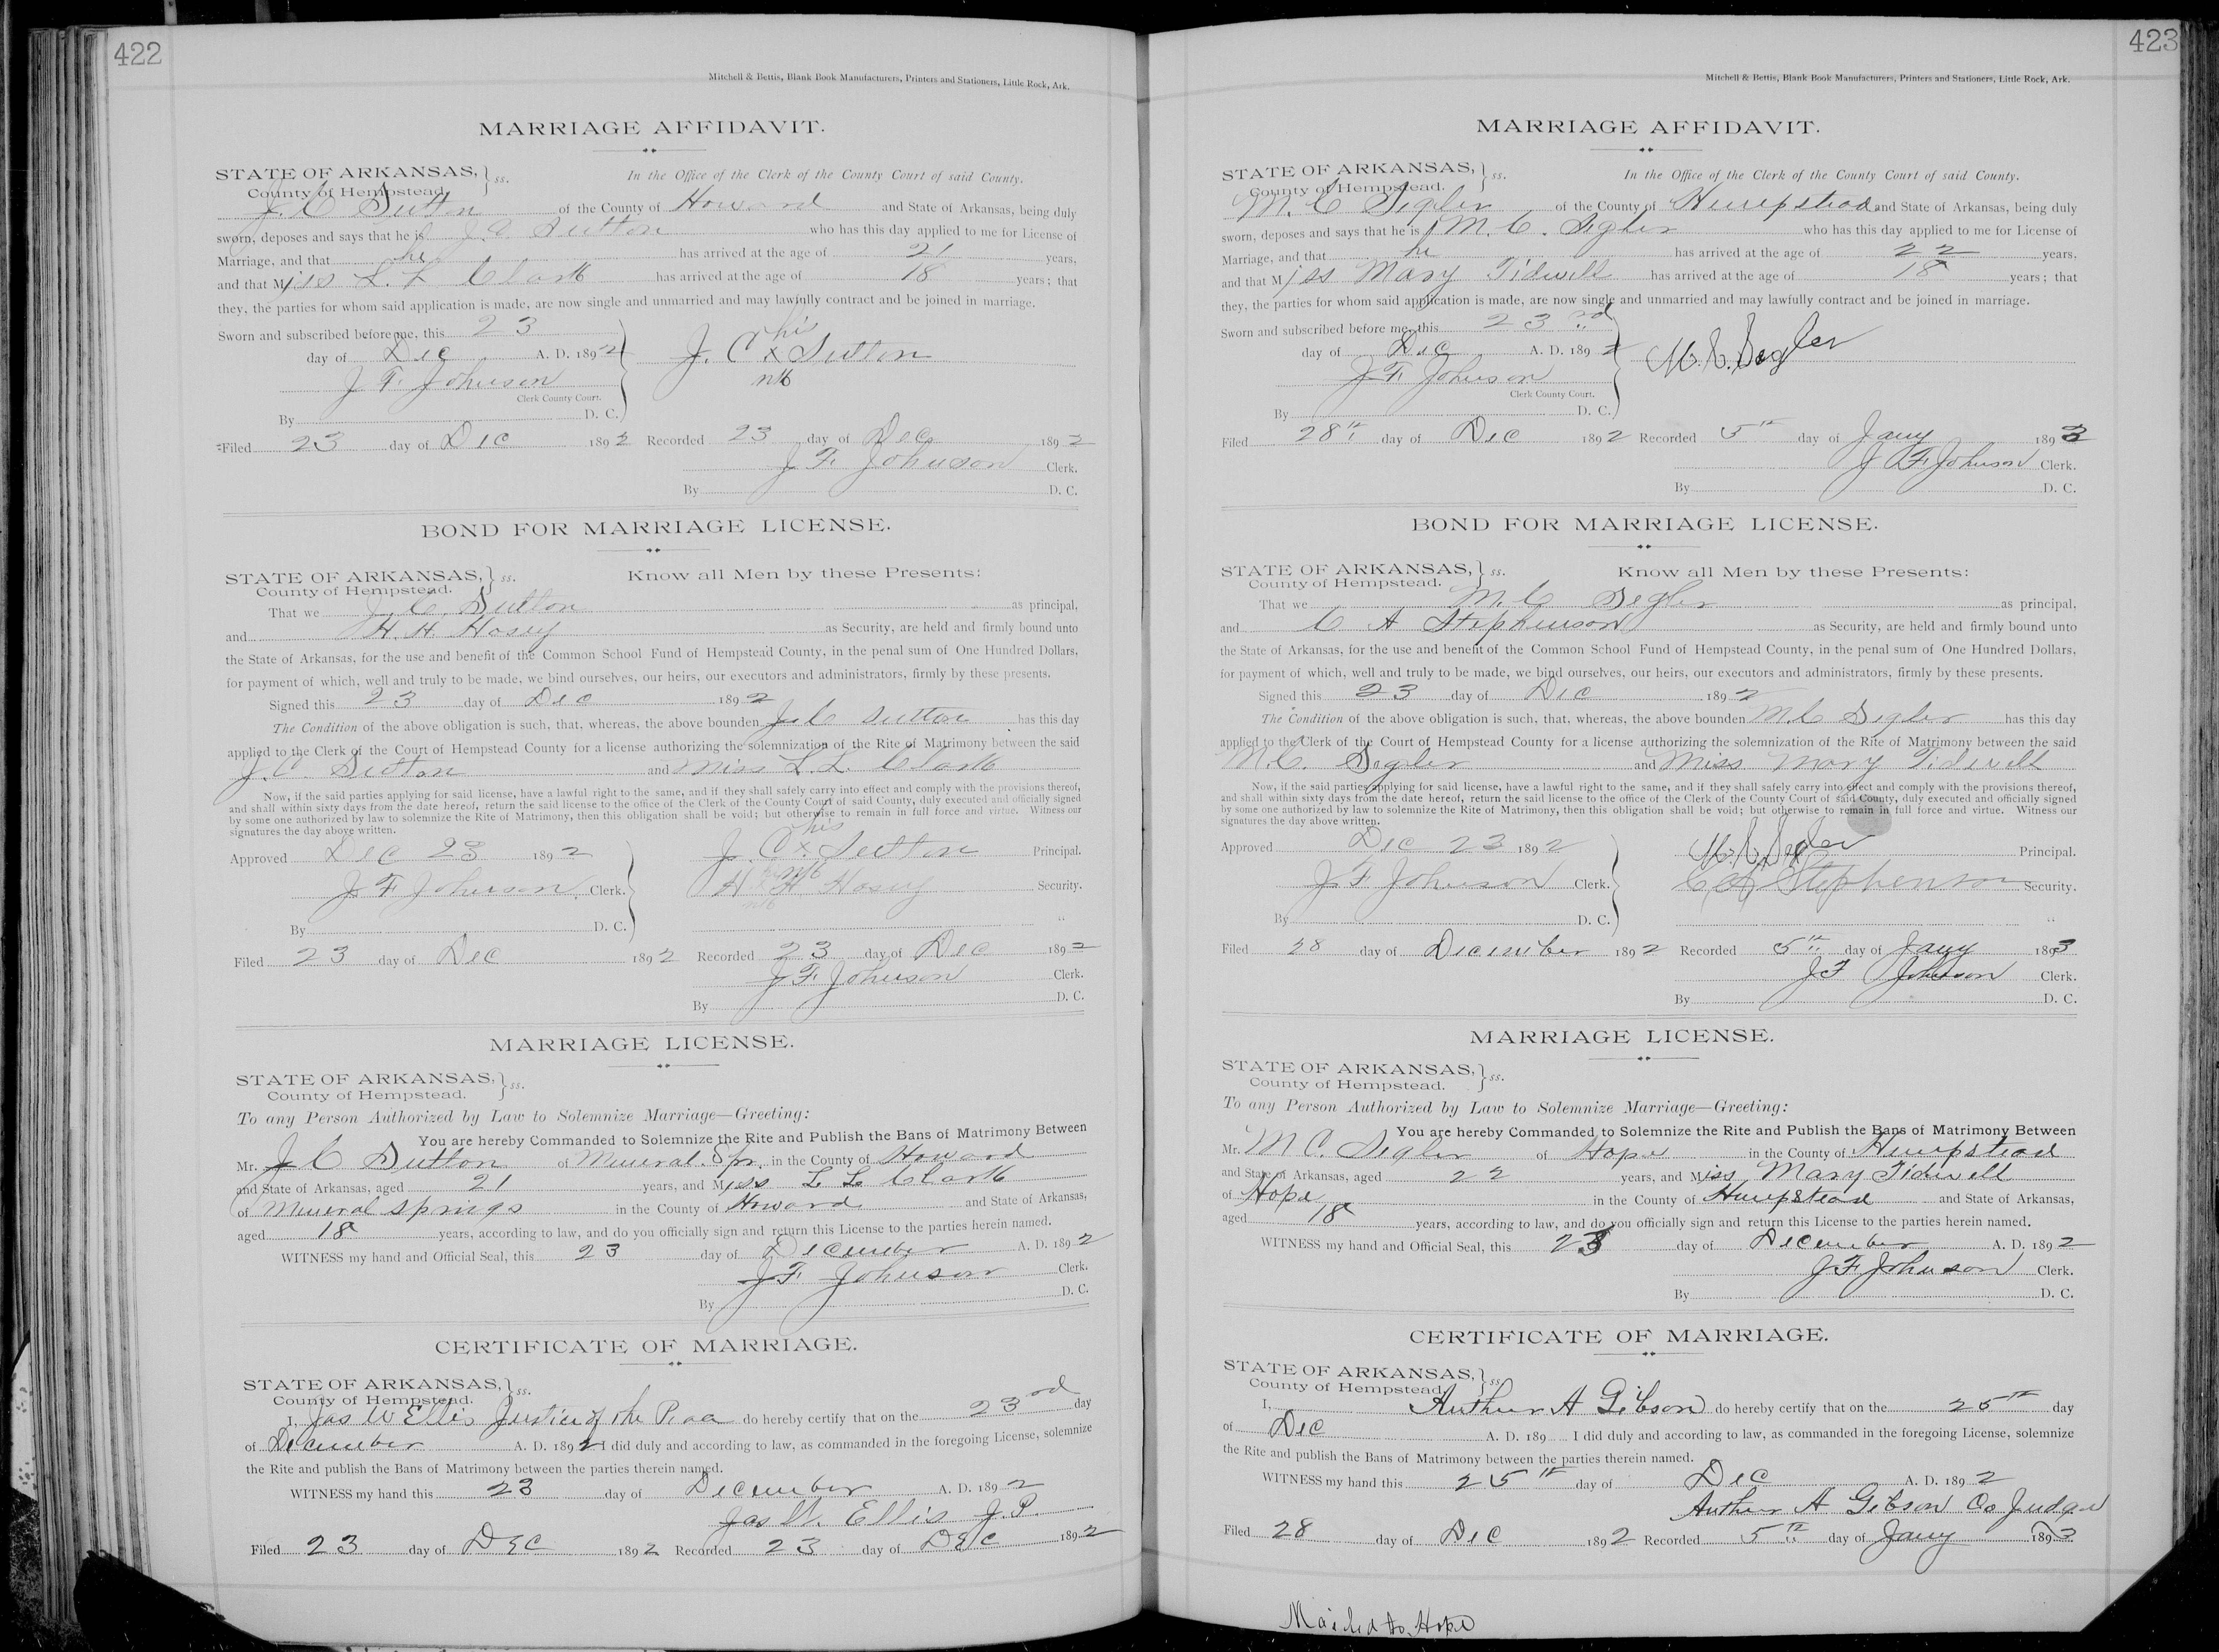 422
Mitchell & Bettis, Blank Book Manufacturers, Printers and Stationers, Little Rock, Ark.
MARRIAGE AFFIDAVIT.
STATE OF ARKANSAS, } ss.
County of Hempstead.
In the Office of the Clerk of the County Court of said County.
J. C Sutton of the County of Howard and State of Arkansas, being duly
sworn, deposes and says that he is J. C. Sutton who has this day applied to me for License of
Marriage, and that he has arrived at the age of 21 years,
and that Miss L. L Clark has arrived at the age of 18 years; that
they, the parties for whom said application is made, are now single and unmarried and may lawfully contract and be joined in marriage.
Sworn and subscribed before me, this 23
day of Dec A. D. 1892
his
J. C x Sutton
mk
J F Johnson
Clerk County Court.
By D. C.
Filed 23 day of Dec 1892 Recorded 23 day of Dec 1892
J F Johnson Clerk.
By D. C.
BOND FOR MARRIAGE LICENSE.
STATE OF ARKANSAS, } ss.
County of Hempstead.
Know all Men by these Presents:
That we J. C. Sutton as principal,
and H. H. Hosey as Security, are held and firmly bound unto
the State of Arkansas, for the use and benefit of the Common School Fund of Hempstead County, in the penal sum of One Hundred Dollars,
for payment of which, well and truly to be made, we bind ourselves, our heirs, our executors and administrators, firmly by these presents.
Signed this 23 day of Dec 1892
The Condition of the above obligation is such, that, whereas, the above bounden J C Sutton has this day
applied to the Clerk of the Court of Hempstead County for a license authorizing the solemnization of the Rite of Matrimony between the said
J. C. Sutton and Miss L. L. Clark
Now, if the said parties applying for said license, have a lawful right to the same, and if they shall safely carry into effect and comply with the provisions thereof,
and shall within sixty days from the date hereof, return the said license to the office of the Clerk of the County Court of said County, duly executed and officially signed
by some one authorized by law to solemnize the Rite of Matrimony, then this obligation shall be void; but otherwise to remain in full force and virtue. Witness our
signatures the day above written.
his
Approved Dec 23 1892 J. C x. Sutton Principal.
mk
J F Johnson Clerk. H x H Hosey Security.
mk
By D. C.
Filed 23 day of Dec 1892 Recorded 23 day of Dec 1892
J F Johnson Clerk.
By D. C.
MARRIAGE LICENSE.
STATE OF ARKANSAS, } ss.
County of Hempstead.
To any Person Authorized by Law to Solemnize Marriage—Greeting:
You are hereby Commanded to Solemnize the Rite and Publish the Bans of Matrimony Between
Mr. J C Sutton of Mineral. Spr. in the County of Howard
and State of Arkansas, aged 21 years, and Miss L L Clark
of Mineral Springs in the County of Howard and State of Arkansas,
aged 18 years, according to law, and do you officially sign and return this License to the parties herein named.
WITNESS my hand and Official Seal, this 23 day of December A. D. 1892
J F Johnson Clerk.
By D. C.
CERTIFICATE OF MARRIAGE.
STATE OF ARKANSAS, } ss.
County of Hempstead.
I, Jas W Ellis Justice of the Peac do hereby certify that on the 23rd day
of December A. D. 1892 I did duly and according to law, as commanded in the foregoing License, solemnize
the Rite and publish the Bans of Matrimony between the parties therein named.
WITNESS my hand this 23 day of December A. D. 1892
Jas W. Ellis J. P.
Filed 23 day of DEC 1892 Recorded 23 day of DEC 1892
423
Mitchell & Bettis, Blank Book Manufacturers, Printers and Stationers, Little Rock, Ark.
MARRIAGE AFFIDAVIT.
STATE OF ARKANSAS, } ss.
County of Hempstead.
In the Office of the Clerk of the County Court of said County.
M. C Segler of the County of Hempstead and State of Arkansas, being duly
sworn, deposes and says that he is M. C. Segler who has this day applied to me for License of
Marriage, and that he has arrived at the age of 22 years,
and that Miss Mary Tidwell has arrived at the age of 18 years; that
they, the parties for whom said application is made, are now single and unmarried and may lawfully contract and be joined in marriage.
Sworn and subscribed before me, this 23rd
day of Dec A. D. 1892 M. C. Segler
J F Johnson
Clerk County Court.
By D. C.
Filed 28th day of Dec 1892 Recorded 5th day of Jany 1893
J F Johnson Clerk.
By D. C.
BOND FOR MARRIAGE LICENSE.
STATE OF ARKANSAS, } ss.
County of Hempstead.
Know all Men by these Presents:
That we M. C Segler as principal,
and C A Stephenson as Security, are held and firmly bound unto
the State of Arkansas, for the use and benefit of the Common School Fund of Hempstead County, in the penal sum of One Hundred Dollars,
for payment of which, well and truly to be made, we bind ourselves, our heirs, our executors and administrators, firmly by these presents.
Signed this 23 day of Dec 1892
The Condition of the above obligation is such, that, whereas, the above bounden M. C Segler has this day
applied to the Clerk of the Court of Hempstead County for a license authorizing the solemnization of the Rite of Matrimony between the said
M. C. Segler and Miss Mary Tidwell
Now, if the said parties applying for said license, have a lawful right to the same, and if they shall safely carry into effect and comply with the provisions thereof,
and shall within sixty days from the date hereof, return the said license to the office of the Clerk of the County Court of said County, duly executed and officially signed
by some one authorized by law to solemnize the Rite of Matrimony, then this obligation shall be void; but otherwise to remain in full force and virtue. Witness our
signatures the day above written.
Approved Dec 23 1892 M. C. Segler Principal.
J F Johnson Clerk. C A Stephenson Security.
By D. C.
Filed 28 day of December 1892 Recorded 5th day of Jany 1893
J F Johnson Clerk.
By D. C.
MARRIAGE LICENSE.
STATE OF ARKANSAS, } ss.
County of Hempstead.
To any Person Authorized by Law to Solemnize Marriage—Greeting:
You are hereby Commanded to Solemnize the Rite and Publish the Bans of Matrimony Between
Mr. M C. Segler of Hope in the County of Hempstead
and State of Arkansas, aged 22 years, and Miss Mary Tidwell
of Hope in the County of Hempstead and State of Arkansas,
aged 18 years, according to law, and do you officially sign and return this License to the parties herein named.
WITNESS my hand and Official Seal, this 23 day of December A. D. 1892
J F Johnson Clerk.
By D. C.
CERTIFICATE OF MARRIAGE.
STATE OF ARKANSAS, } ss.
County of Hempstead.
I, Arthur A Gibson do hereby certify that on the 25th day
of Dec A. D. 189 I did duly and according to law, as commanded in the foregoing License, solemnize
the Rite and publish the Bans of Matrimony between the parties therein named.
WITNESS my hand this 25th day of Dec A. D. 1892
Arthur A Gibson Co Judge
Filed 28 day of Dec 1892 Recorded 5th day of Jany 1893
Mailed to. Hope